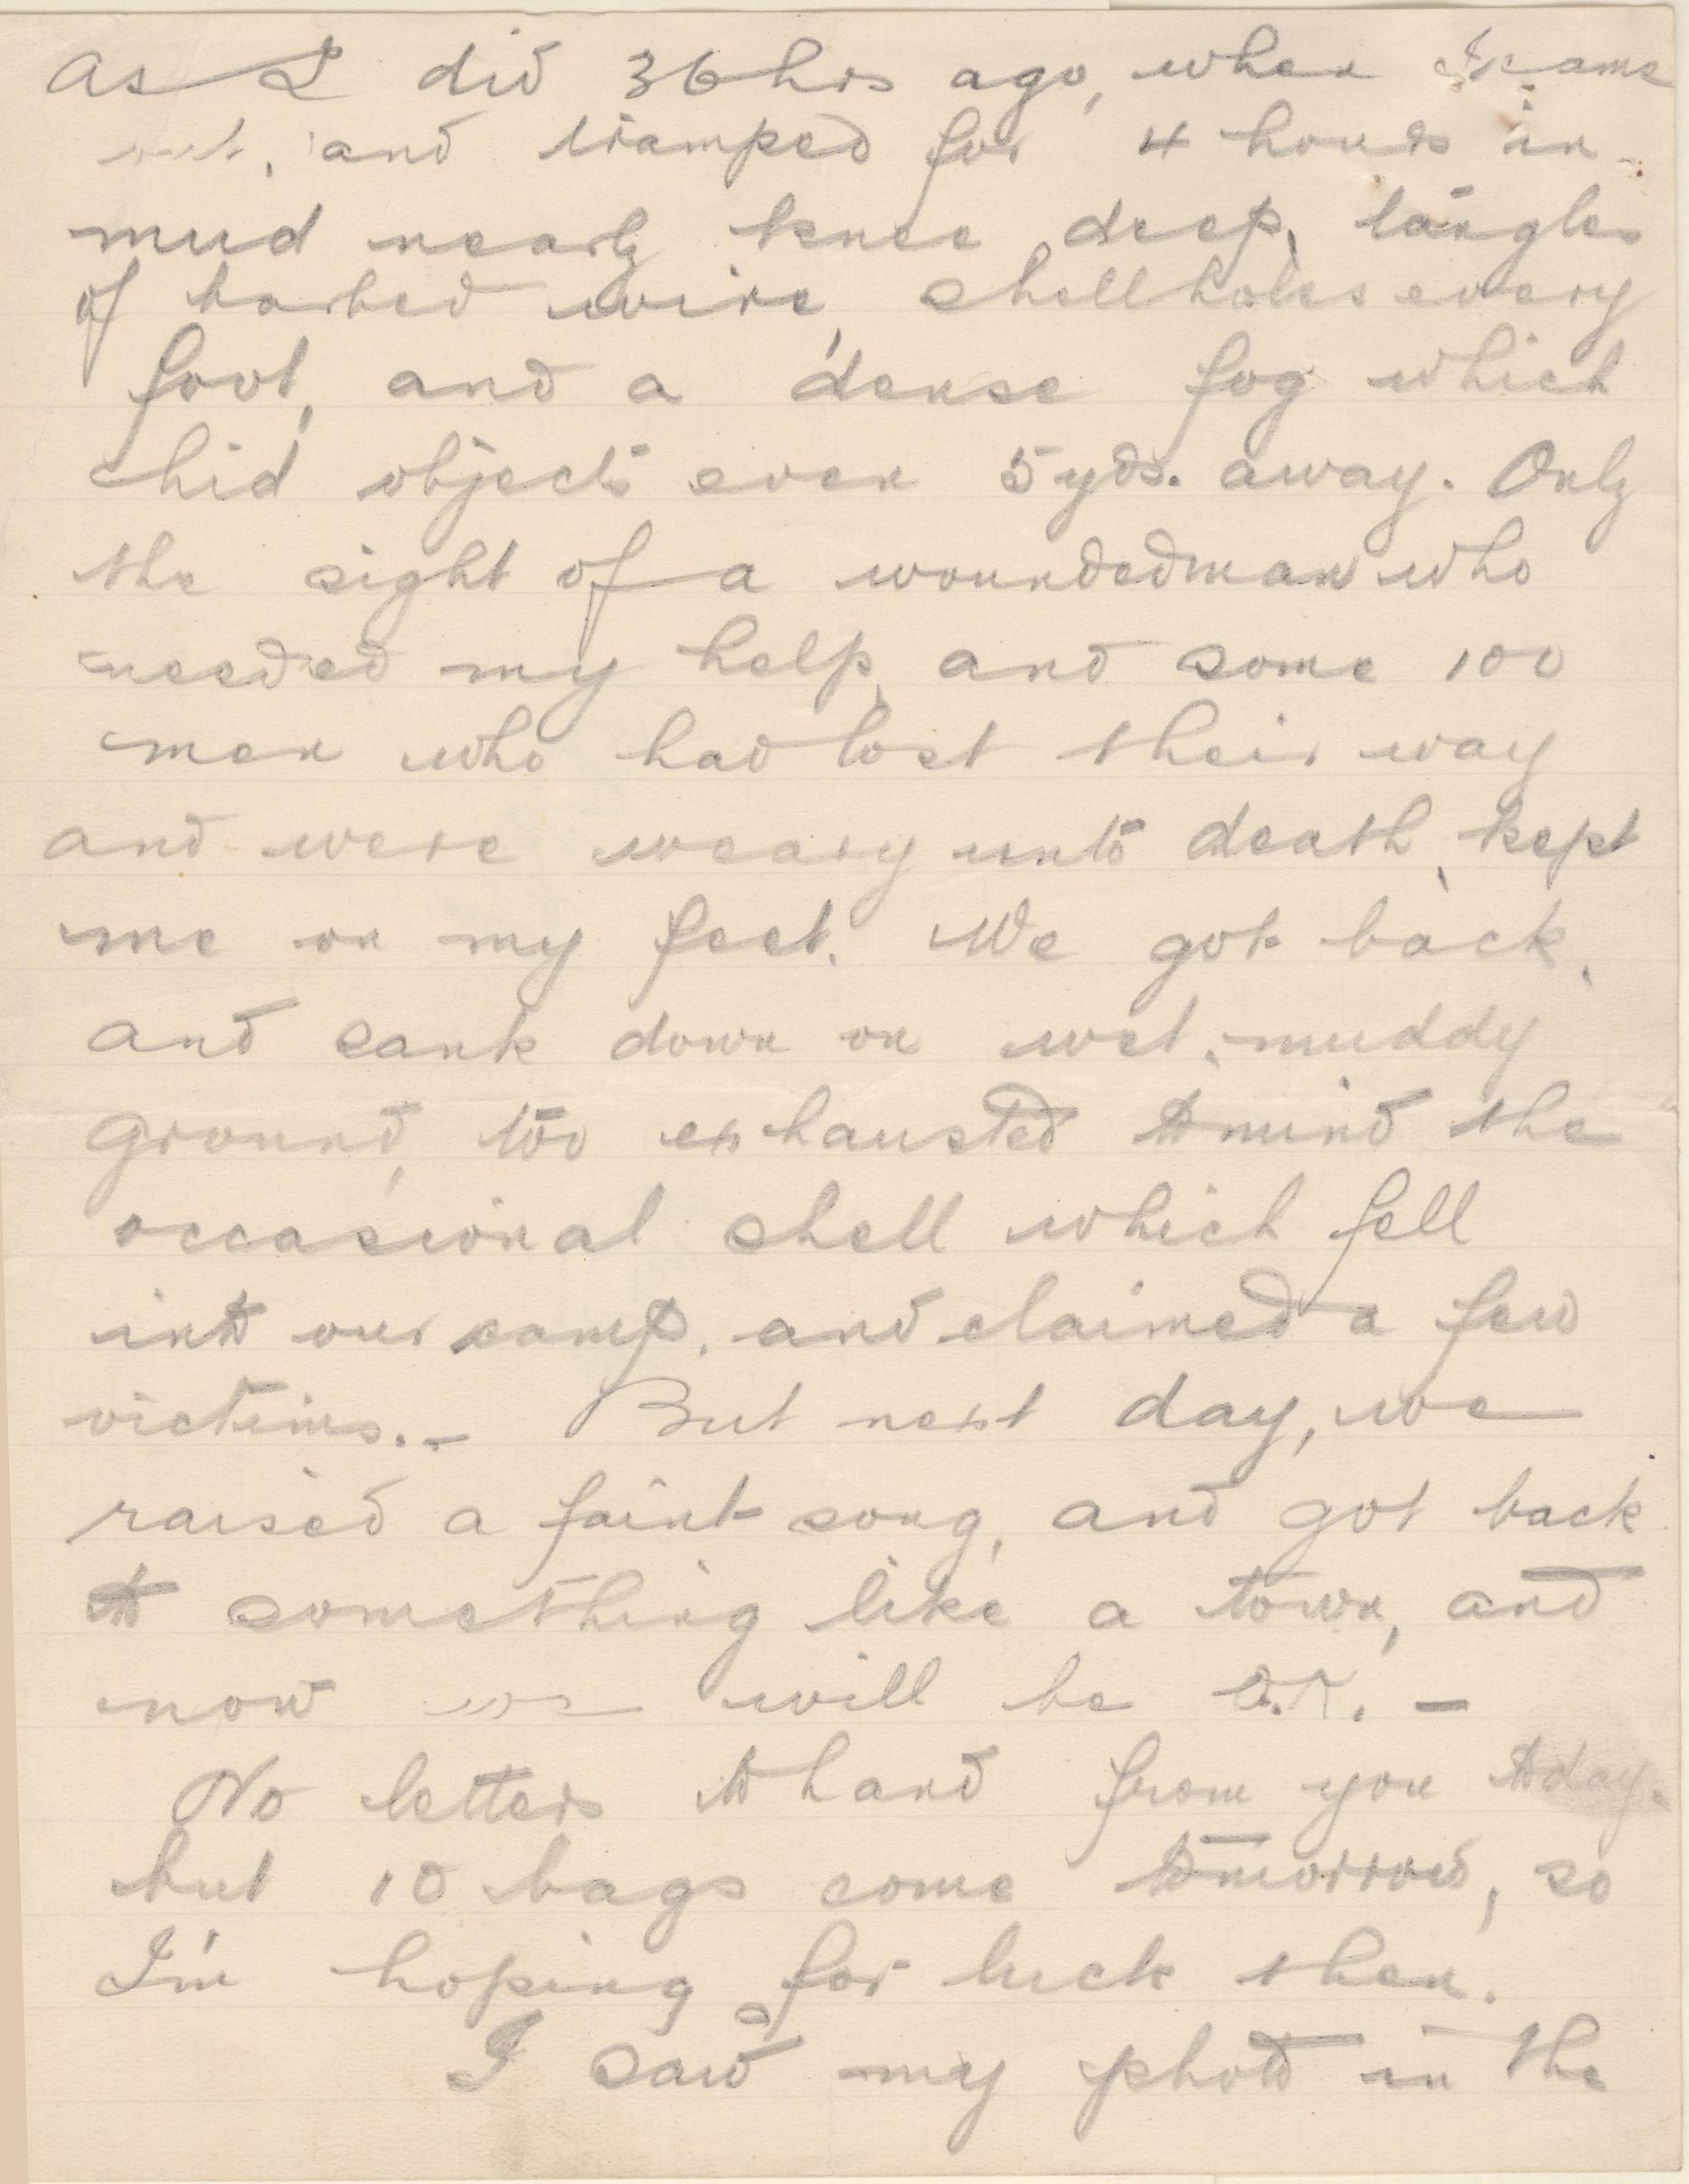 as I did 36 hrs ago, when I came
out, and tramped for 4 hours in
mud nearly knee deep, tangles
of barbed wire, shell holes every
foot, and a dense fog which
hid objects even 5 yds. away. Only
the sight of a wounded man who
needed my help, and some 100
men who had lost their way
and were weary unto death, kept
me on my feet. We got back,
and sank down on wet, muddy
ground, too exhausted to mind the
occasional shell which fell
into our camp, and claimed a few
victims. - But next day, we
raised a faint song, and got back
to something like a town, and
now we will be O.K. -
No letters to hand from you today.
but 10 bags come tomorrow, so
I'm hoping for luck then.
I saw my photo in the